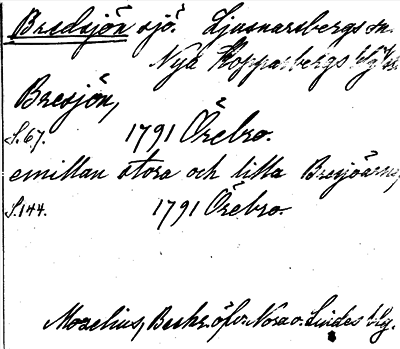 Bredsjön sjö. Ljusnarsbergs sn.
Nya Kopparbergs blg.
Bresjön,
S. 67. 1791 Örebro.
emillan stora och lilla Bresjöarne,
S. 144. 1791 Örebro.
Mozelius, Beskr. öfver Nora o. Lindes blg.